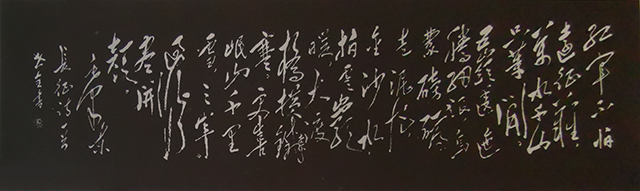 红军不怕
遠征難
萬水千山
只等閒
五嶺逶迤
腾細浪烏
蒙磅礴
走泥丸
金沙水
拍雲崖
暖大渡
橋横鐵索
寒更喜
岷山千里
雪三军
過後
盡開
颜
毛澤東
長征詩一首